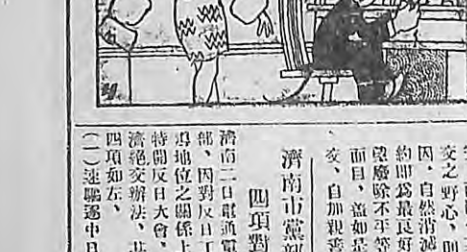 交之野心、明
因、自然消滅
約即爲最良好
望廢除不平等
面目、蓋如是
交、自加親善
濟南市黨部
四項對
濟南二日電通電
部、因對反日工
導地位之關係上
特開反日大會、
濟絕交辦法、共
四項如左、
(一)速驅逐中日